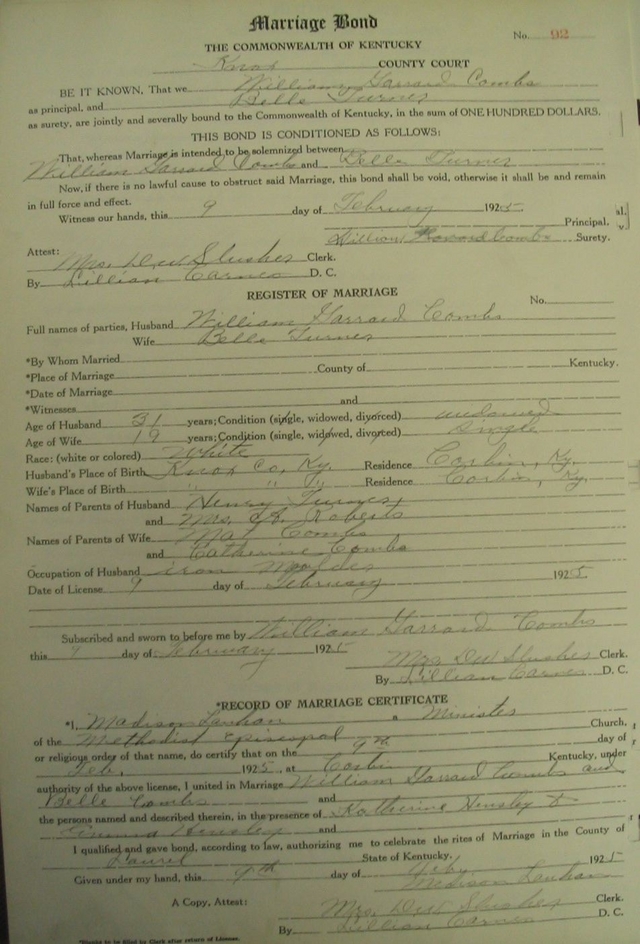 Marriage Bond
No. 92
THE COMMONWEALTH OF KENTUCKY
Knox COUNTY COURT
BE IT KNOWN, That we William Garrard Combs
as principal, and Belle Turner
as surety, are jointly and severally bound to the Commonwealth of Kentucky, in the sum of ONE HUNDRED DOLLARS.
THIS BOND IS CONDITIONED AS FOLLOWS:
That, whereas Marriage is intended to be solemnized between
William Garrard Combs and Belle Turner
Now, if there is no lawful cause to obstruct said Marriage, this bond shall be void, otherwise it shall be and remain
in full force and effect.
Witness our hands, this 9 day of February 1925.
Principal.
William Combs Surety.
Attest:
Mrs. DW Slusher Clerk.
By Lillian Carnes D. C.
REGISTER OF MARRIAGE
No.
Full names of parties, Husband William Garrard Combs
Wife Belle Turner
*By Whom Married
*Place of Marriage County of Kentucky.
*Date of Marriage
*Witnesses and
Age of Husband 31 years; Condition (single, widowed, divorced) widowed
Age of Wife 19 years; Condition (single, widowed, divorced) single
Race: (white or colored) White
Husband's Place of Birth Knox Co, Ky. Residence Corbin, Ky.
Wife's Place of Birth " " " Residence Corbin, Ky.
Names of Parents of Husband Henry Turner,
and Mrs. Roberts
Names of Parents of Wife Mat Combs
and Catherine Combs
Occupation of Husband iron Molder
Date of License 9 day of February 1925
Subscribed and sworn to before me by William Garrard Combs
this 9 day of February 1925
Mrs DW Slusher Clerk.
By Lillian Carnes D. C.
*RECORD OF MARRIAGE CERTIFICATE
*I, Madison Lanham a Minister Church,
of the Methodist Episcopal
or religious order of that name, do certify that on the 9th day of
Feb. 1925, at Corbin Kentucky, under
authority of the above license, I united in Marriage William Garrard Combs and
Belle Combs and
the persons named and described therein, in the presence of Katherine Hensley &
Emma Hensley and
I qualified and gave bond, according to law, authorizing me to celebrate the rites of Marriage in the County of
Laurel State of Kentucky.
Given under my hand, this 9th day of Feby 1925
Madison Lanham
A Copy, Attest: Mrs. DW Slusher Clerk.
By Lillian Carnes D. C.
*Blanks to be filled by Clerk after return of License.